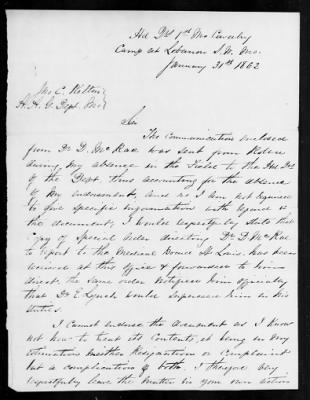 Hd Qrs 1st Mo Cavalry
Camp at Lebanon S.W. Mo.
January 31st 1862
Jno C. Kelton
A. A. G. Dept. Mo
Sir
The Communication enclosed
from Dr D. McRae was sent from Rolla
during my absence in the Field to the Hd Qrs
of the Dept. thus accounting for the absence
of my endorsement, and as I am not required
to give specific information with regard to
the document, I would respectfully state that
copy of Special Order directing Dr D. McRae
to report to the Medical Board St Louis, has been
received at this office & forwarded to him
direct the same order notifies him officially
that Dr E Lynch would supersede him in his
duties.
I cannot endorse the document as I know
not how to treat its Contents, it being in my
estimation neither Resignation or Complaint
but a complication of both. I therefore very
respectfully leave the matter in your own action